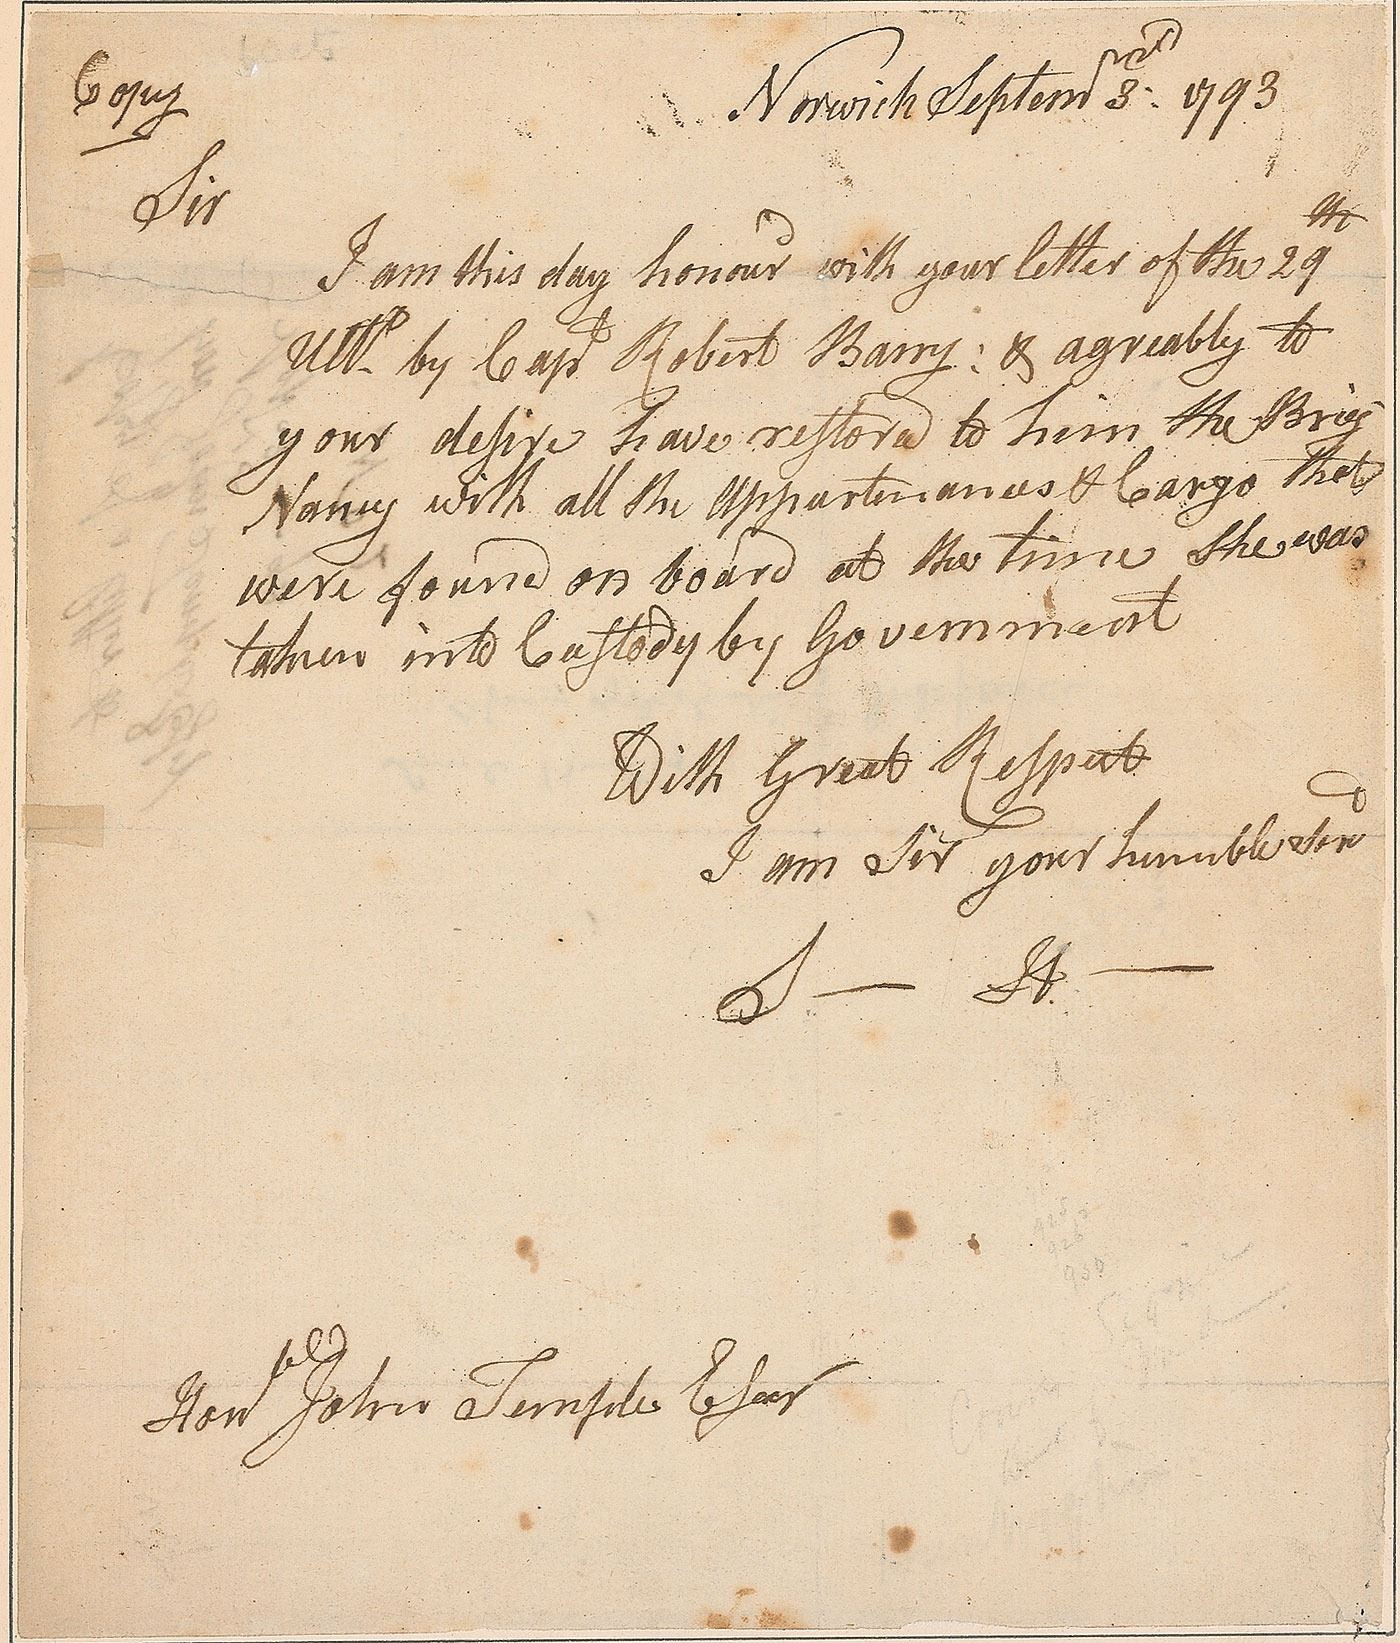 Copy
Norwich Septemr 3rd. 1793
Sir
I am this day honour'd with your letter of the 29th
Ulto. by Capt Robert Barry: & agreably to
your desire have restored to him the Brig
Nancy with all the Appurtenances & Cargo that
were found on board at the time She was
taken into Custody by Government
With Great Respect
I am Sir your humble Servd
S — H. —
Honble John Temple Esqr
925
926
930